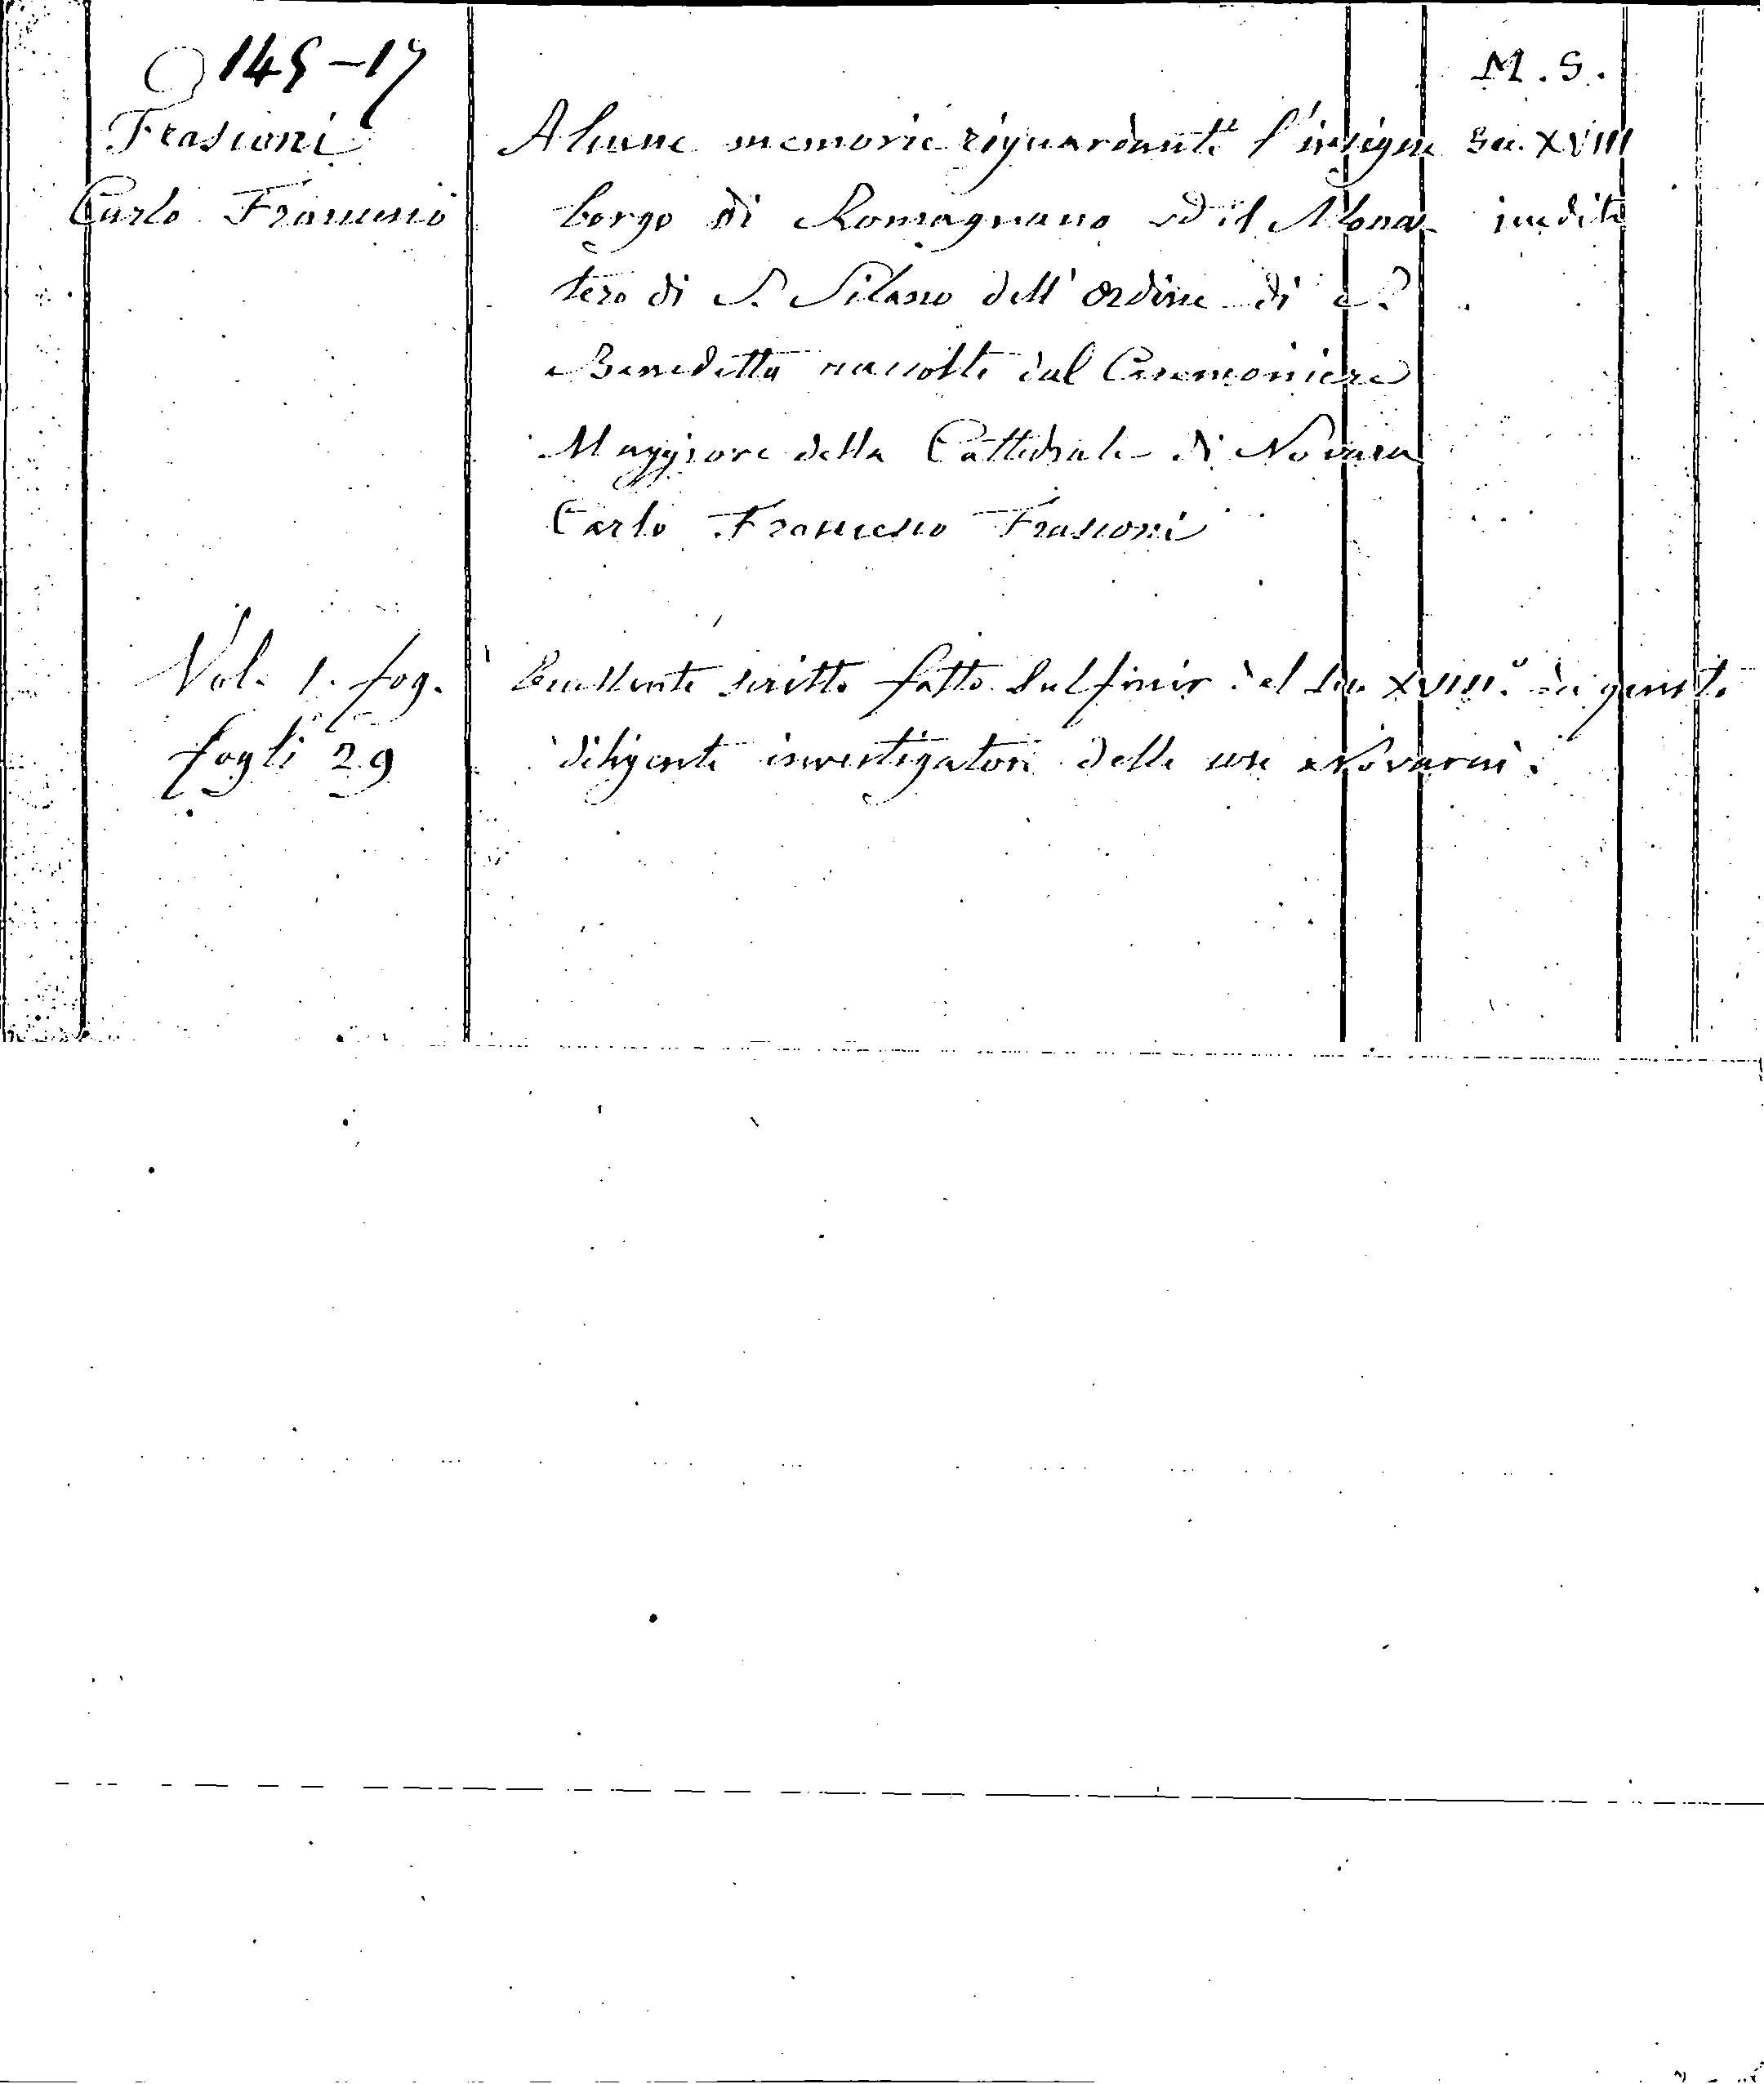 145-17
M.S.
Frasconi
Alcune memorie riguardanti l'insigne
Sec. XVIII
Carlo Francesco
borgo di Romagnano ed il Monas-
inedite
tero di S. Silano dell'ordine di S.
Benedetto raccolte dal Ceremoniere
Maggiore della Cattedrale di Novara
Carlo Francesco Frasconi
Vol. 1. fog.
Eccellente scritto fatto sul finir del Sec. XVIII.° da questo
fogli 29
diligente investigatore delle cose Novaresi.